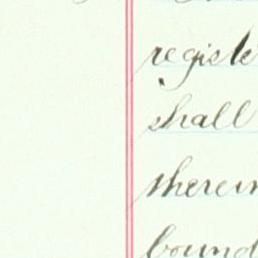 registe
shall
therein
bound